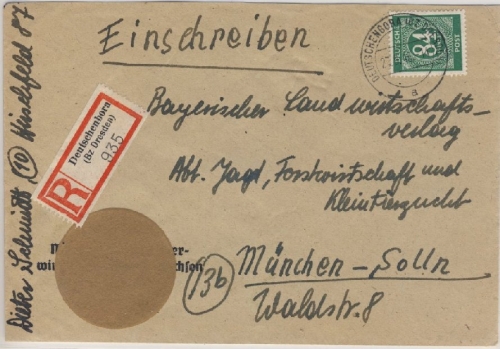 Einschreiben
DEUTSCHENBORA
a
DEUTSCHE POST
84
Bayerischer Landwirtschafts-
verlag
Abt. Jagd, Forstwirtschaft und
Kleintierzucht
(13b)
München-Solln
Waldstr. 8
R
Deutschenbora
(Bz Dresden)
935
Dieter Schmidt (10) Hirschfeld 87